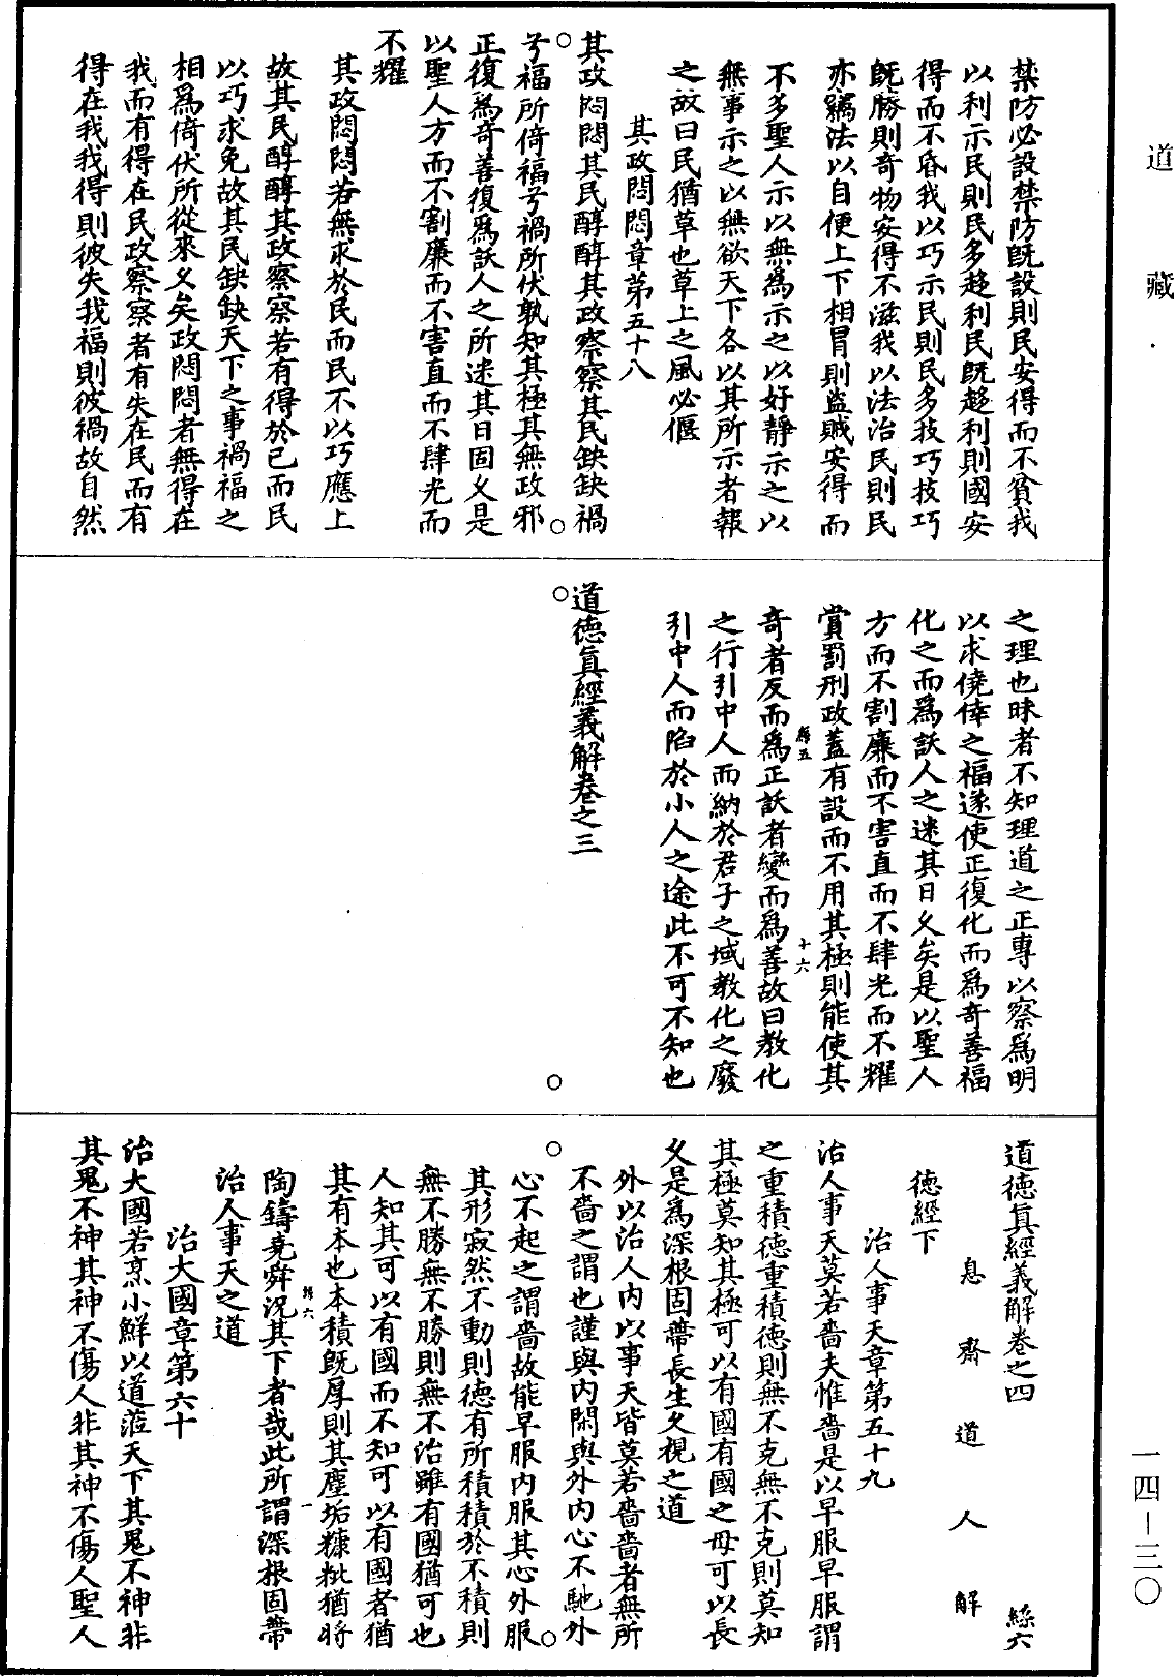 道藏
禁防必設禁防旣設則民安得而不貧我
以利示民則民多趍利民旣趍利則國安
得而不昏我以巧示民則民多技巧技巧
旣勝則奇物安得不滋我以法治民則民
亦竊法以自便上下相冒則盜賊安得而
不多聖人示以無爲示之以好靜示之以
無事示之以無欲天下各以其所示者報
之故曰民猶草也草上之風必偃
其政悶悶章第五十八
其政悶悶其民醇醇其政察察其民缺缺禍
兮福所倚福兮禍所伏孰知其極其無政邪
正復爲奇善復爲訞人之所迷其日固乆是
以聖人方而不割廉而不害直而不肆光而
不耀
其政悶悶若無求於民而民不以巧應上
故其民醇醇其政察察若有得於已而民
以巧求免故其民缺缺天下之事禍福之
相爲倚伏所從來乆矣政悶悶者無得在
我而有得在民政察察者有失在民而有
得在我我得則彼失我福則彼禍故自然
之理也昧者不知理道之正專以察爲明
以求僥倖之福遂使正復化而爲奇善福
化之而爲訞人之迷其日乆矣是以聖人
方而不割廉而不害直而不肆光而不耀
賞罰刑政蓋有設而不用其極則能使其
絲五
十六
奇者反而爲正訞者變而爲善故曰教化
之行引中人而納於君子之域教化之廢
引中人而陷於小人之途此不可不知也
道德眞經義解卷之三
道德眞經義解卷之四
絲六
息齋道人解
德經下
治人事天章第五十九
治人事天莫若嗇夫惟嗇是以早服早服謂
之重積德重積德則無不克無不克則莫知
其極莫知其極可以有國有國之母可以長
乆是爲深根固蔕長生乆視之道
外以治人內以事天皆莫若嗇嗇者無所
不嗇之謂也謹與內閑與外內心不馳外
心不起之謂嗇故能早服內服其心外服
其形寂然不動則德有所積積於不積則
無不勝無不勝則無不治雖有國猶可也
人知其可以有國而不知可以有國者猶
其有本也本積旣厚則其塵垢糠粃猶將
絲六
一
陶鑄堯舜況其下者哉此所謂深根固蔕
治人事天之道
治大國章第六十
治大國若烹小鮮以道蒞天下其鬼不神非
其鬼不神其神不傷人非其神不傷人聖人
一四－三〇